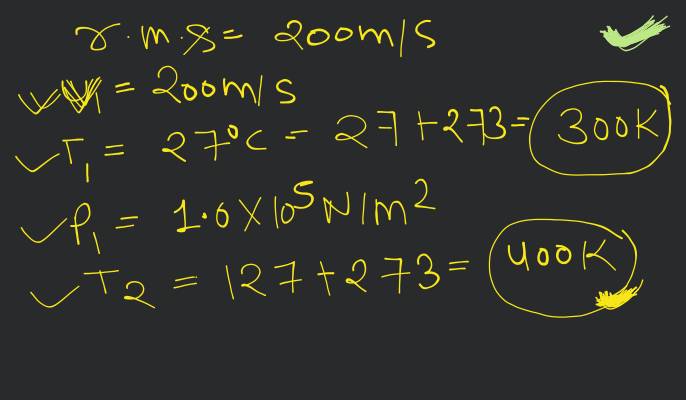 r.m.s = 200m/s
V₁ = 200m/s
T₁ = 27°C = 27+273= 300K
P₁ = 1.0X10⁵N/m²
T₂ = 127+273= 400K